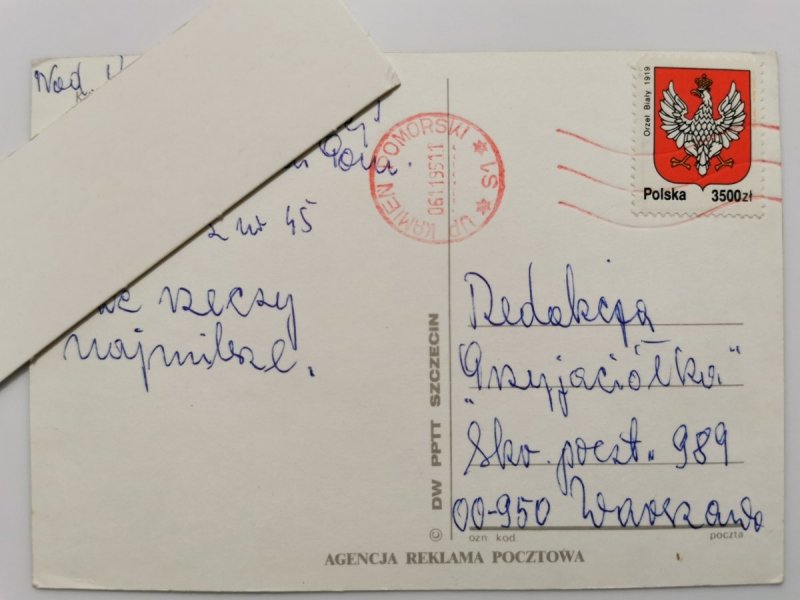 Nad.
Pom.
z nr 45
rzeczy
najmilsze.
UP KAMIEŃ POMORSKI * VS *
061195 11
Orzeł Biały 1919
Polska 3500zł
Redakcja
„Przyjaciółka"
Skr. poczt. 989
00-950 Warszawa
ozn kod poczta
© DW PPTT SZCZECIN
AGENCJA REKLAMA POCZTOWA